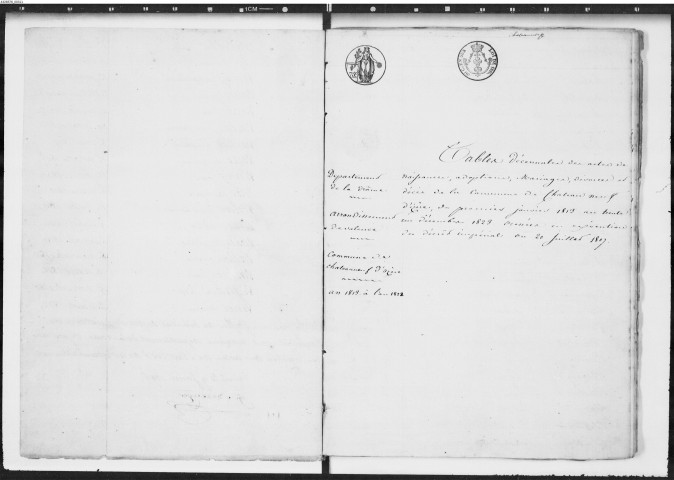 Tables décennales des actes de
naissances, adoptions, Mariages, divorces et
décès de la Commune de Chateau neuf
d'Isère, du premier janvier 1813 au trente
un décembre 1822 dressée en exécution
du décret impérial du 20 Juillet 1807.
Département
de la Drôme
Arrondissement
de valence
Commune de
chateauneuf d'isère
an 1813 à l'an 1822